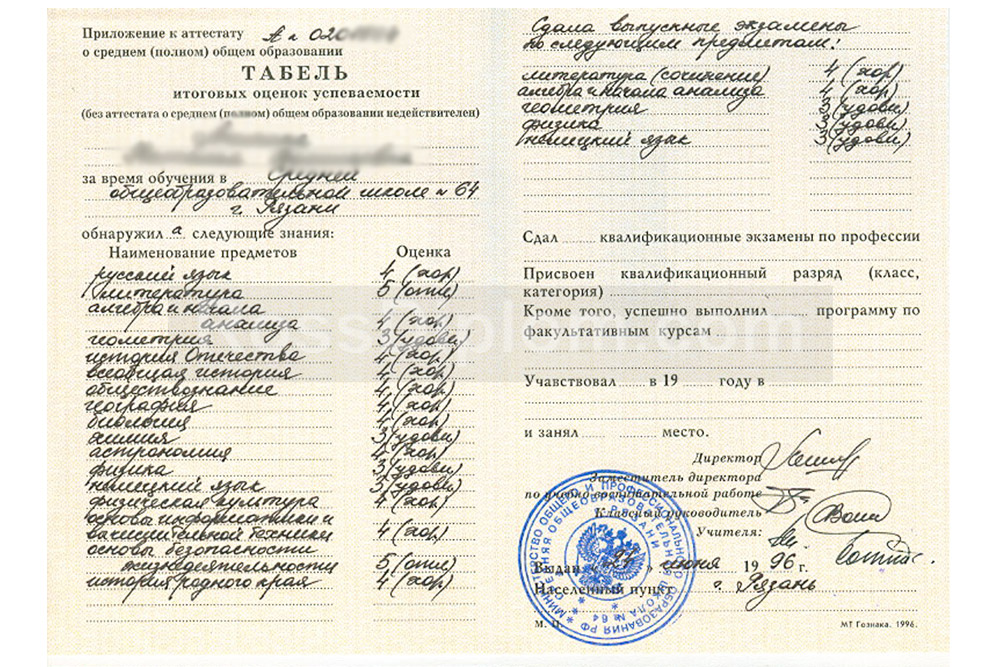 Приложение к аттестату А № 020
о среднем (полном) общем образовании
ТАБЕЛЬ
итоговых оценок успеваемости
(без аттестата о среднем (полном) общем образовании недействителен)
за время обучения в средней
общеобразовательной школе № 64
г. Рязани
обнаружил а следующие знания:
Наименование предметов Оценка
русский язык 4 (хор)
литература 5 (отл)
алгебра и начала
анализа 4 (хор)
геометрия 3 (удовл)
история Отечества 4 (хор)
всеобщая история 4 (хор)
обществознание 4 (хор)
география 4 (хор)
биология 4 (хор)
химия 3 (удовл)
астрономия 4 (хор)
физика 3 (удовл)
немецкий язык 3 (удовл)
физическая культура 4 (хор)
основы информатики и
вычислительной техники 4 (хор)
основы безопасности
жизнедеятельности 5 (отл)
история родного края 4 (хор)
Сдала выпускные экзамены
по следующим предметам:
литература (сочинение) 4 (хор)
алгебра и начала анализа 4 (хор)
геометрия 3 (удовл)
физика 3 (удовл)
немецкий язык 3 (удовл)
Сдал квалификационные экзамены по профессии
Присвоен квалификационный разряд (класс,
категория)
Кроме того, успешно выполнил программу по
факультативным курсам
Учавствовал в 19 году в
и занял место.
Директор
Заместитель директора
по учебно-воспитательной работе
Классный руководитель
Учителя:
Выдан « 24 » июня 19 96 г.
Населенный пункт г. Рязань
М. П.
МТ Гознака. 1996.
МИНИСТЕРСТВО ОБЩЕГО И ПРОФЕССИОНАЛЬНОГО ОБРАЗОВАНИЯ РФ
СРЕДНЯЯ ОБЩЕОБРАЗОВАТЕЛЬНАЯ ШКОЛА № 64